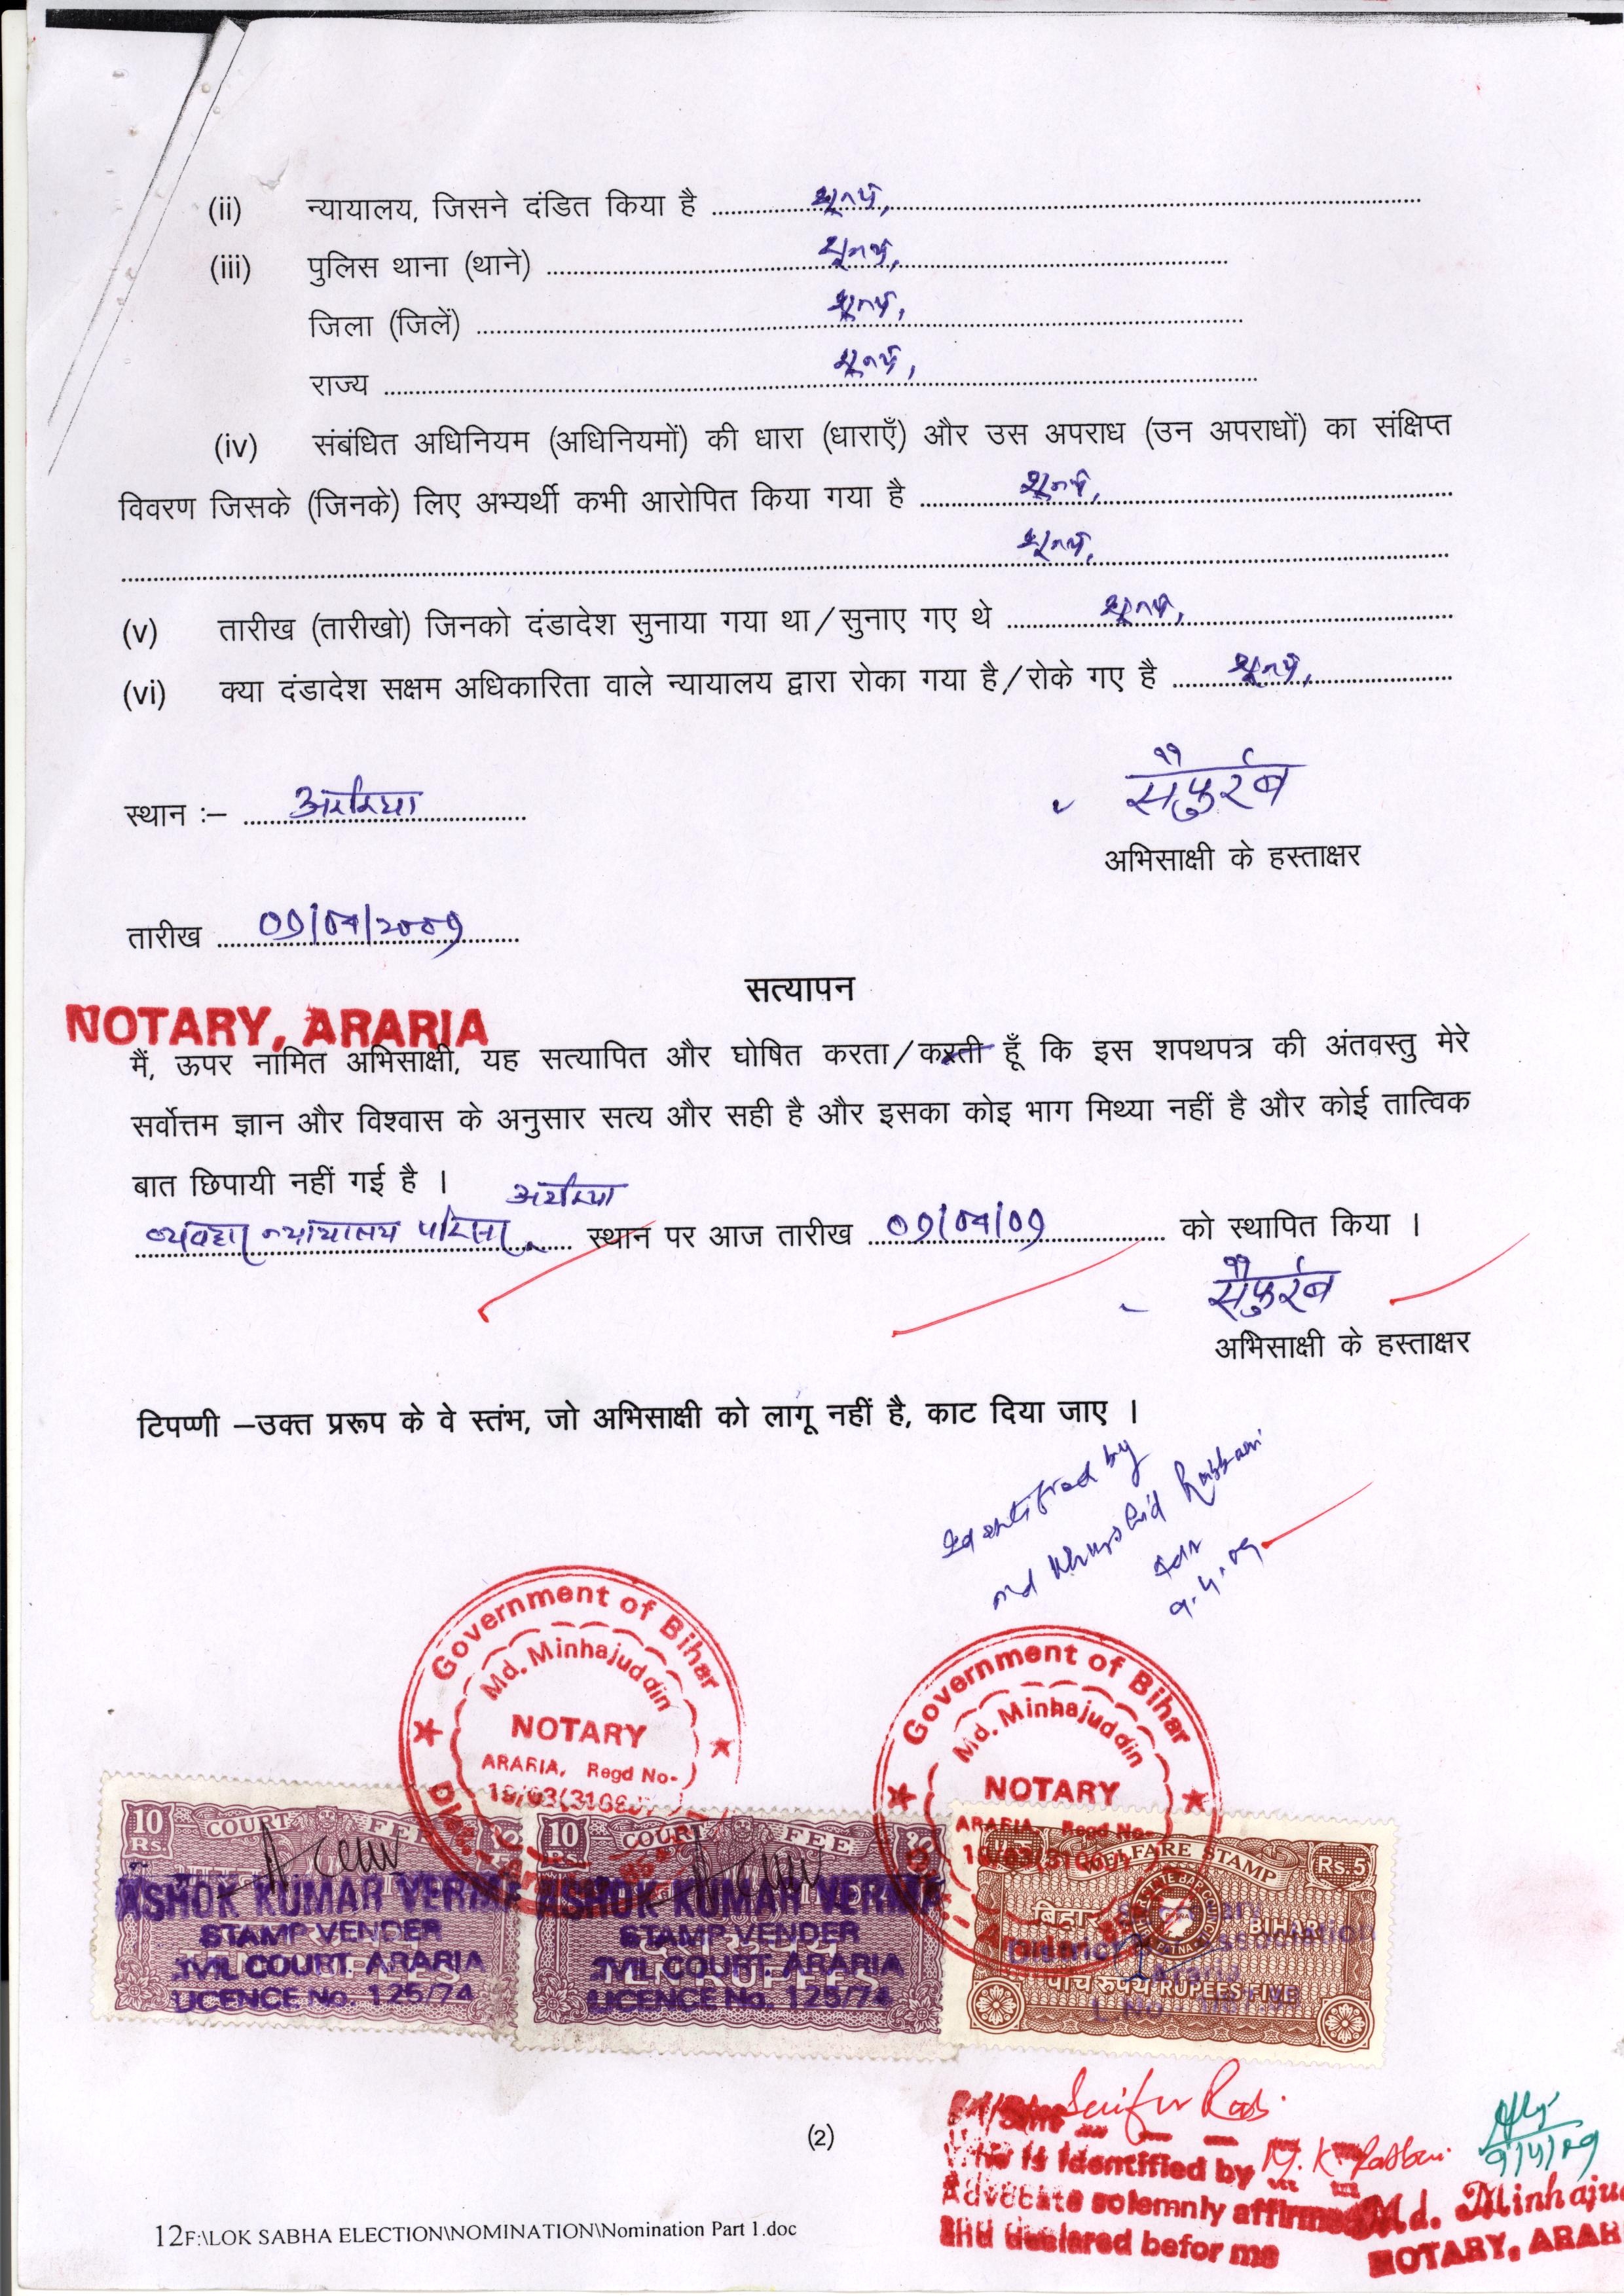 (ii) न्यायालय, जिसने दंडित किया है ........ शून्य,
(iii) पुलिस थाना (थाने) ........ शून्य,
जिला (जिलें) ........ शून्य,
राज्य ........ शून्य,
(iv) संबंधित अधिनियम (अधिनियमों) की धारा (धाराएँ) और उस अपराध (उन अपराधों) का संक्षिप्त
विवरण जिसके (जिनके) लिए अभ्यर्थी कभी आरोपित किया गया है ........ शून्य,
........ शून्य,
(v) तारीख (तारीखो) जिनको दंडादेश सुनाया गया था/सुनाए गए थे ........ शून्य,
(vi) क्या दंडादेश सक्षम अधिकारिता वाले न्यायालय द्वारा रोका गया है/रोके गए है ........ शून्य,
सैफुर्रब
स्थान :– अररिया
अभिसाक्षी के हस्ताक्षर
तारीख 09/04/2009
सत्यापन
NOTARY, ARARIA
मैं, ऊपर नामित अभिसाक्षी, यह सत्यापित और घोषित करता/करती हूँ कि इस शपथपत्र की अंतवस्तु मेरे
सर्वोत्तम ज्ञान और विश्वास के अनुसार सत्य और सही है और इसका कोइ भाग मिथ्या नहीं है और कोई तात्विक
बात छिपायी नहीं गई है ।
अररिया
व्यवहार न्यायालय परिसर स्थान पर आज तारीख 09/04/09 को स्थापित किया ।
सैफुर्रब
अभिसाक्षी के हस्ताक्षर
टिपण्णी –उक्त प्ररूप के वे स्तंभ, जो अभिसाक्षी को लागू नहीं है, काट दिया जाए ।
Identified by
Md Khurshid Rabbani
Adv
9.4.09
Government of Bihar
Md. Minhajuddin
NOTARY
ARARIA, Regd No-
Government of Bihar
Md. Minhajuddin
NOTARY
ARARIA, Regd No-
10 Rs. COURT FEE
ASHOK KUMAR VERMA
STAMP VENDER
CIVIL COURT. ARARIA
LICENCE No. 125/74
10 Rs. COURT FEE
ASHOK KUMAR VERMA
STAMP VENDER
CIVIL COURT. ARARIA
LICENCE No. 125/74
WELFARE STAMP Rs.5
बिहार BIHAR
पांच रुपये RUPEES FIVE
Saifur Rab
(2)
Who is identified by M. K. Rabbani
Advocate solemnly affirmed
and declared befor me
9/4/09
Md. Minhaju
NOTARY, ARAR
12F:\LOK SABHA ELECTION\NOMINATION\Nomination Part 1.doc